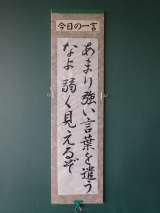 今日の一言
あまり強い言葉を遣う
なよ 弱く見えるぞ